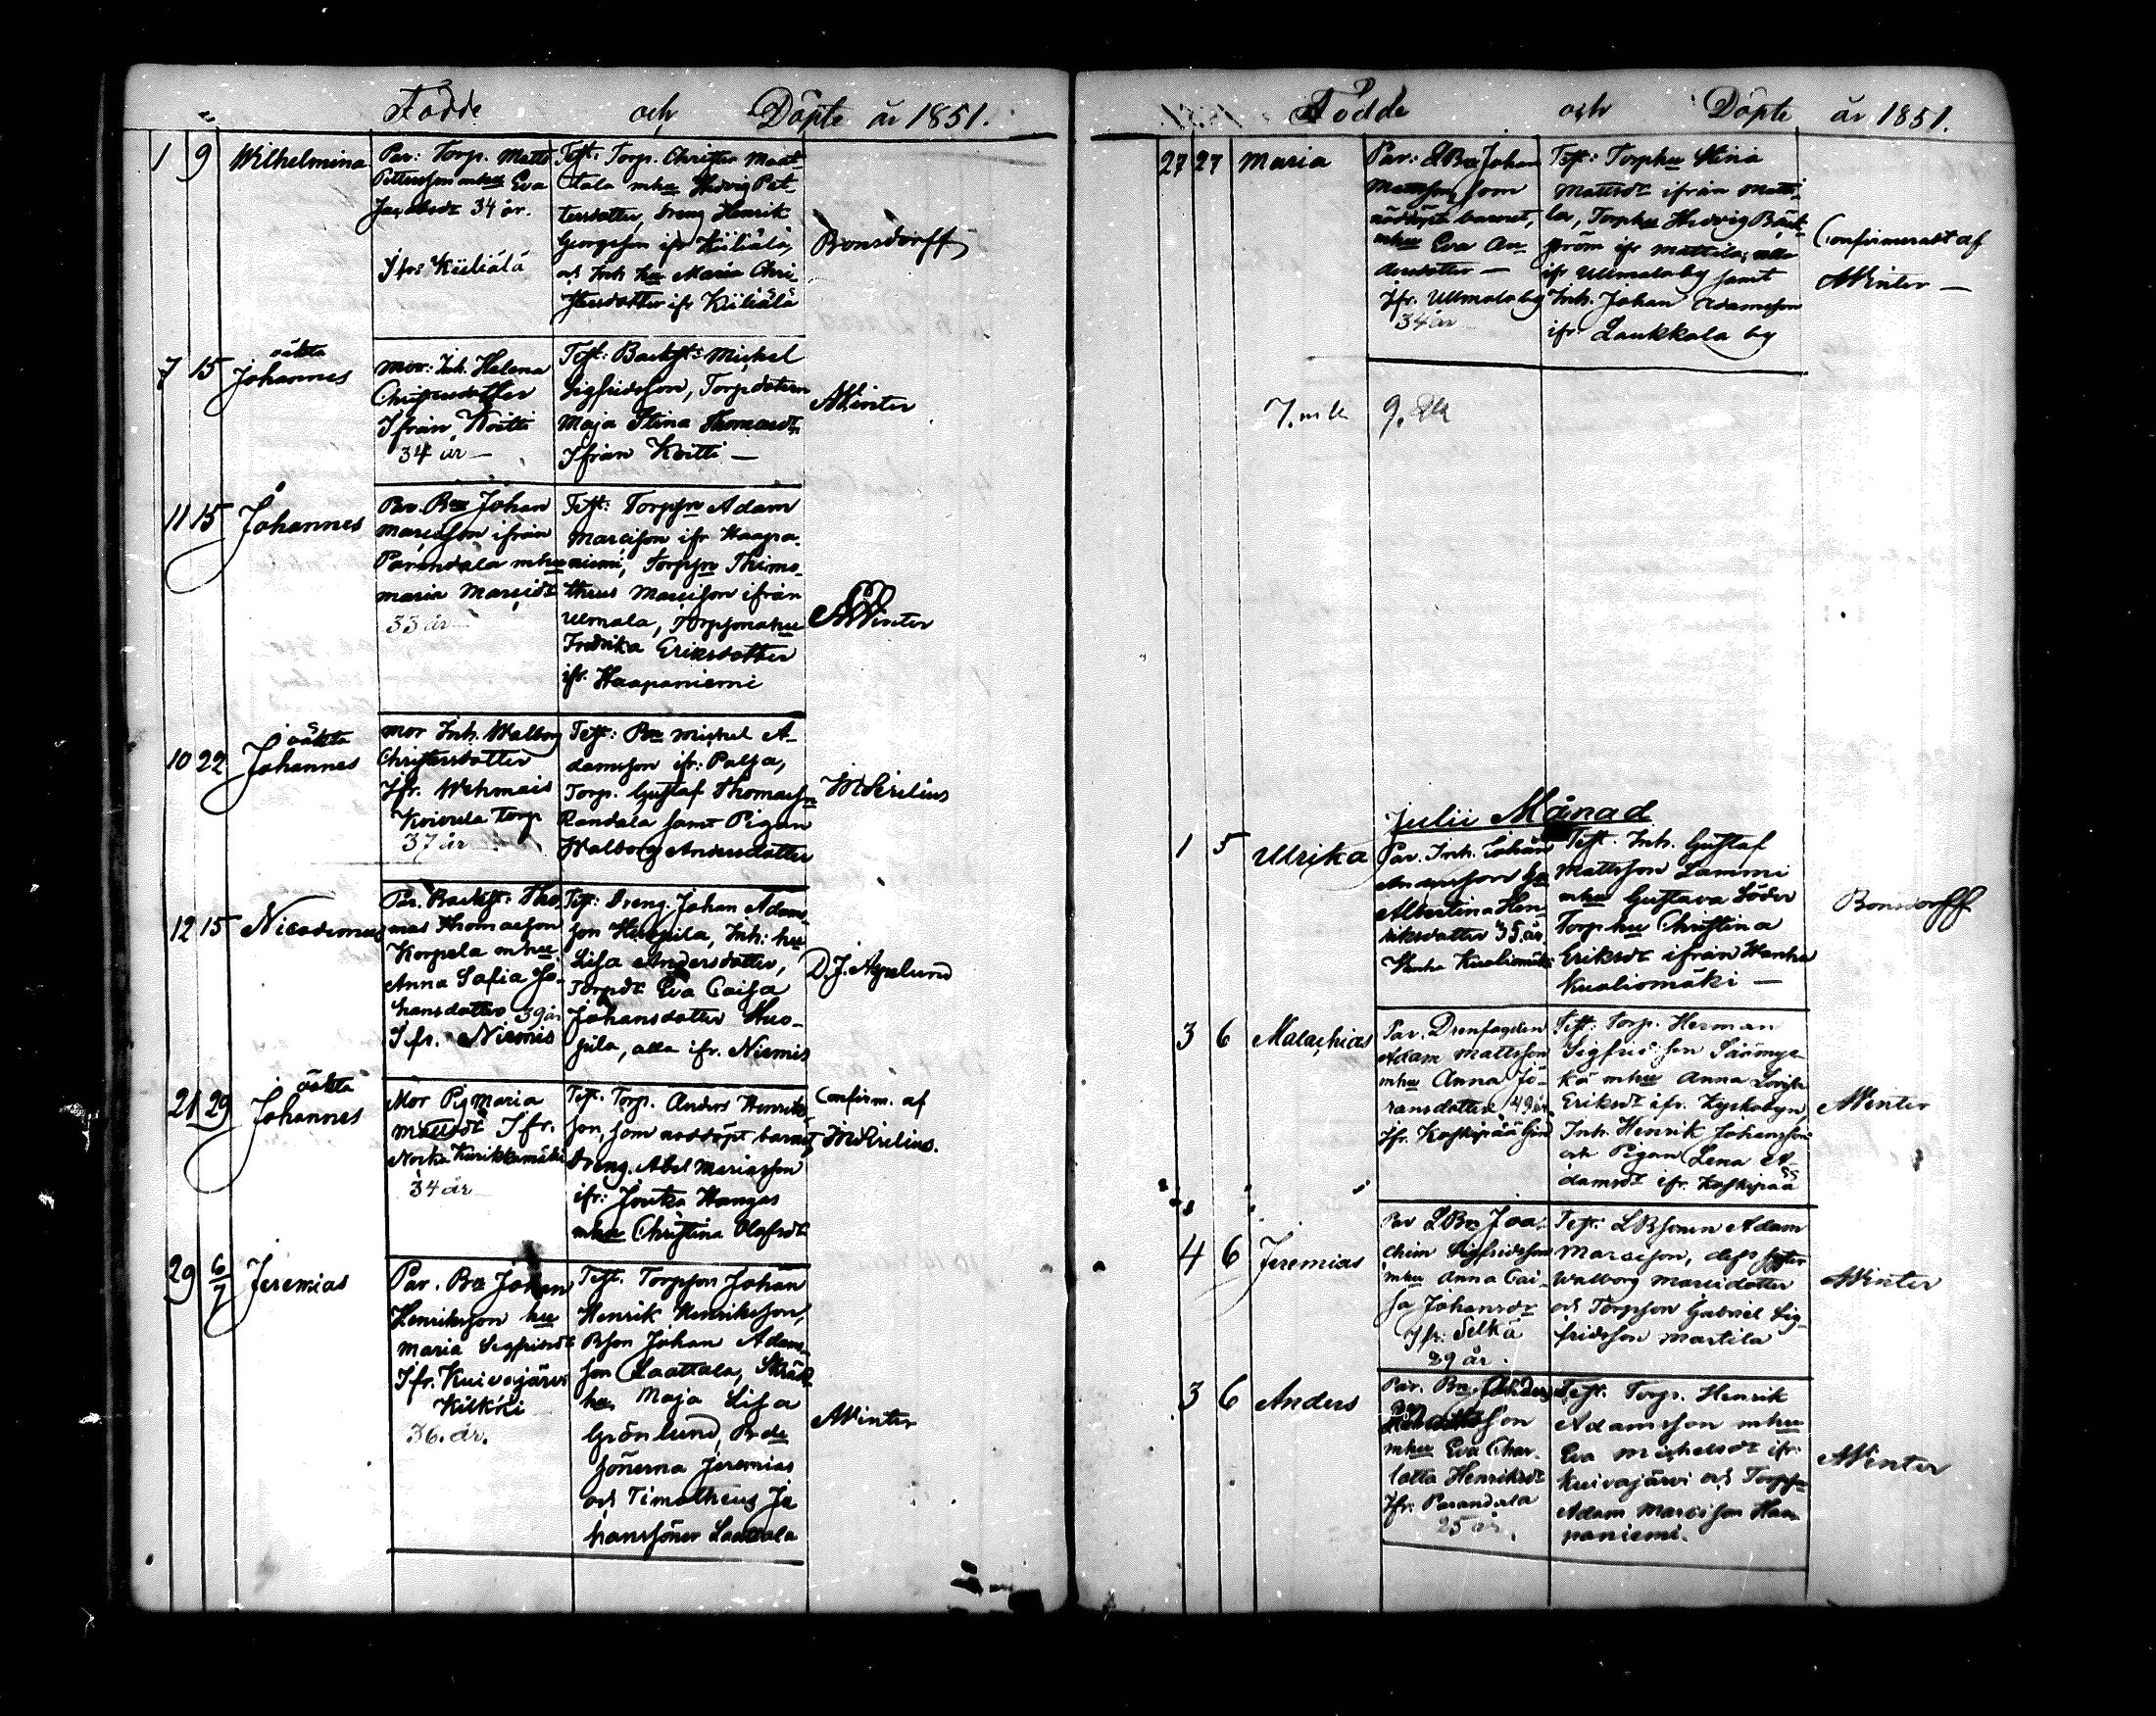 Födde och Döpte år 1851.
1 9 Wilhelmina
Par: Torp. Matts
Pettersson mhu Eva
Jacobsdr 34 år.
Ifr: Kiiliälä
Test: Torp. Christer Matt
tala mhu Hedvig Pet-
tersdotter, Dreng Henrik
Georgsson ifr Kiiliälä,
och Inh hu Maria Chri-
stersdotter ifr Kiiliälä
Bonsdorff
7 15 oäkta
Johannes
Mor: Inh. Helena
Christersdotter
Ifrån Koitti
34 år —
Test: Backst: Michel
Sigfridsson, Torpdottern
Maja Stina Thomasdr
Ifrån Koitti —
AWinter
11 15 Johannes
Par. Bn Johan
Marcisson ifrån
Parandala mhu
Maria Marcidr
33 år
Test: Torpsn Adam
Marcisson ifr Haapa-
niemi, Torpsn Thimo-
theus Marcisson ifrån
Ulmala, Torpsonahu
Fredrika Eriksdotter
ifr. Haapaniemi
AWinter
10 22 oäkta
Johannes
Mor Inh. Walborg
Christersdotter
Ifr. Wehmais
Koivula Torp
37 år
Test: Bn Michel A-
damsson ifr: Palsa,
Torp. Gustaf Thomassn
Randala samt Pigan
Walborg Andersdotter
MSirilius
12 15 Nicodemus
Par. Backst: Tho-
mas Thomasson
Korpela mhu
Anna Safia Jo-
hansdotter 39 år
Ifr. Niemis
Test: Dreng. Johan Adams-
son Huopila, Inh: hu
Lisa Andersdotter,
Torpdr Eva Caisa
Johansdotter Huo-
pila, alla ifr. Niemis
D.J. Aspelund
21 29 oäkta
Johannes
Mor Pig Maria
Mattsdr Ifr.
Norka Kurikkamäki
34 år
Test. Torp. Anders Henriks-
son, som nöddöpt barnet
Dreng. Abel Mariasson
ifr: Joutka Hangas
mhu Christina Olofsdr
Confirm. af
MSirilius.
29 6/7 Jeremias
Par. Bn Johan
Henriksson hu
Maria Sigfridsdr
Ifr. Kuivajärvi
Kilkki
36. år.
Test. Torpson Johan
Henrik Henriksson,
Bson Johan Adams-
son Laattala,
hu Maja Lisa
Grönlund,
sönerna Jeremias
och Timotheus Jo
hanssöner Laattala
AWinter
Födde och Döpte år 1851.
27 27 Maria
Par: LBn Johan
Mattsson som
nöddöpt barnet,
mhu Eva An-
dersdotter —
Ifr. Ullmala by
34 år
Test: Torphu Stina
Mattsdr ifrån Matti-
la, Torphu Hedvig Bäck-
ström ifr Mattila, alla
ifr Ullmala by samt
Inh. Johan Adamsson
ifr. Laukkala by
Confirmeradt af
AWinter —
7. mk 9. qk
Julii Månad
1 5 Ulrika
Par. Inh. Johan
Andersson hu
Albertina Hen-
riksdotter 35. år.
Test. Inh. Gustaf
Mattsson Lammi
mhu Gustava Söder
Torp hu Christina
Eriksdr ifrån Wanha
Kualiomäki —
Bonsdorff
3 6 Malachias
Par. Drenfogden
Adam Mattsson
mhu Anna Jö-
ransdotter 49 år.
Ifr. Koskipää
Test: Torp. Herman
Sigfridsson Säämys-
kä mhu Anna Lovisa
Eriksdr ifr.
Inh. Henrik Johansson
och Pigan Lena A-
damsdr ifr. Koskipää
AWinter
4 6 Jeremias
Par LBn Joa-
chim Sigfridsson
mhu Anna Cai-
sa Johansdr
Ifr: Selkä
29 år.
Test: LBsonen Adam
Marcisson, dess syster
Walborg Marcidotter
och Torpson Gabriel Sig-
fridsson Martila
AWinter
3 6 Anders
Par. Bn Anders
mhu Eva Char-
lotta Henriksdr
Ifr: Parandala
25 år.
Test. Torp. Henrik
Adamsson mhu
Eva Michelsdr ifr
Kuivajärvi och Torpsn
Adam Marcisson Haa-
paniemi.
AWinter